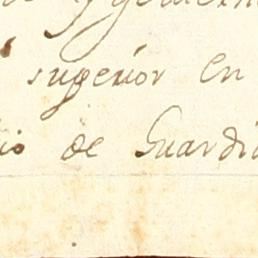 superior en
io de Guardia